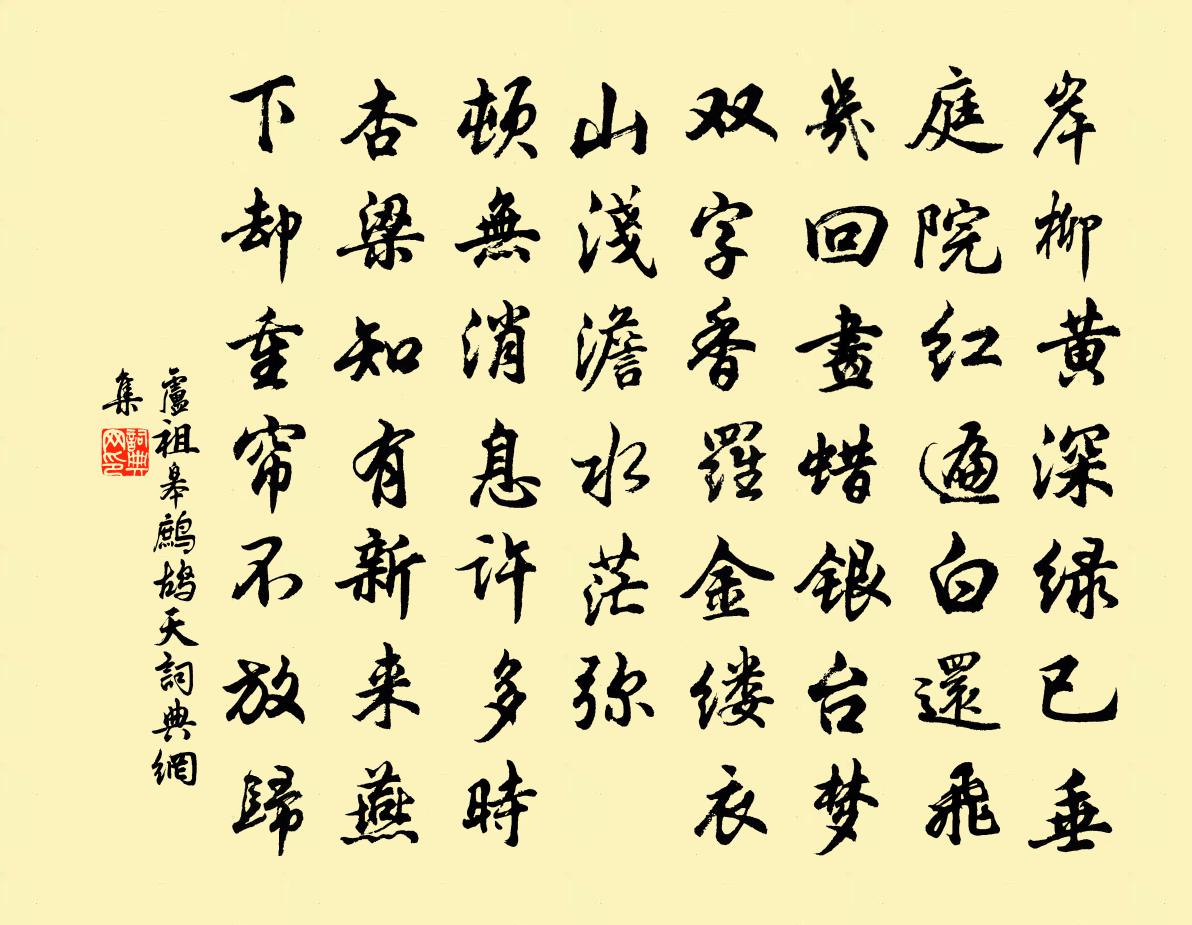 岸柳黄深绿已垂
庭院红遍白還飛
幾回畫蜡银台梦
双字香羅金缕衣
山淺澹水茫弥
頓無消息许多時
杏梁知有新来燕
下却重帘不放歸
盧祖皋鷓鴣天詞典網
集
詞典网印